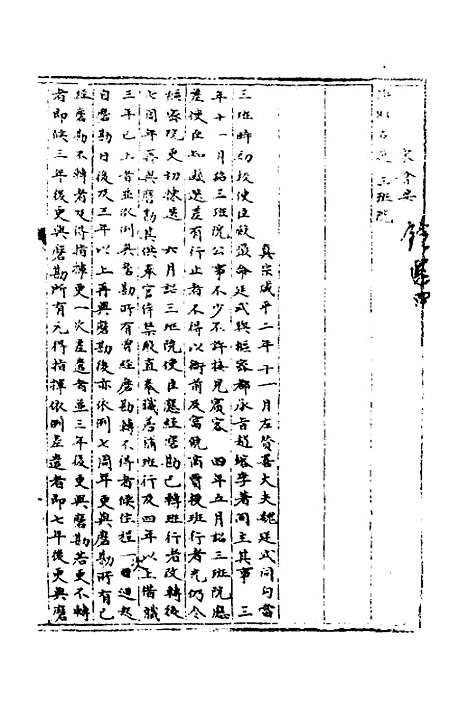 宋會要
三班院
真宗咸平二年十一月左贊善大夫魏廷式同勾當
三班時初以使臣數最命廷式與樞密都承旨趙鎔李著同主其事 三
年十一月詔三班院公事不少不許接見賓客 四年五月詔三班院應
差使臣如敢選差有行止者不得以衙前及富饒商賈授班行者充仍令
樞密院更切揀選 六月詔三班院使臣應經磨勘已轉班行者改轉後
七周年再與磨勘其供奉官侍禁殿直奉職各滿班行及四年以上借職
三年已上者並依例與磨勘有曾經磨勘轉不得者候住程一日迴起
自磨勘日後及三年以上再與磨勘後亦依例七周年更與磨勘所有已
經磨勘不轉者及得指揮更一次差遣者並三年後更與磨勘若更不轉
者即候三年後更與磨勘所有元得指揮依例差遣者即七年後更與磨